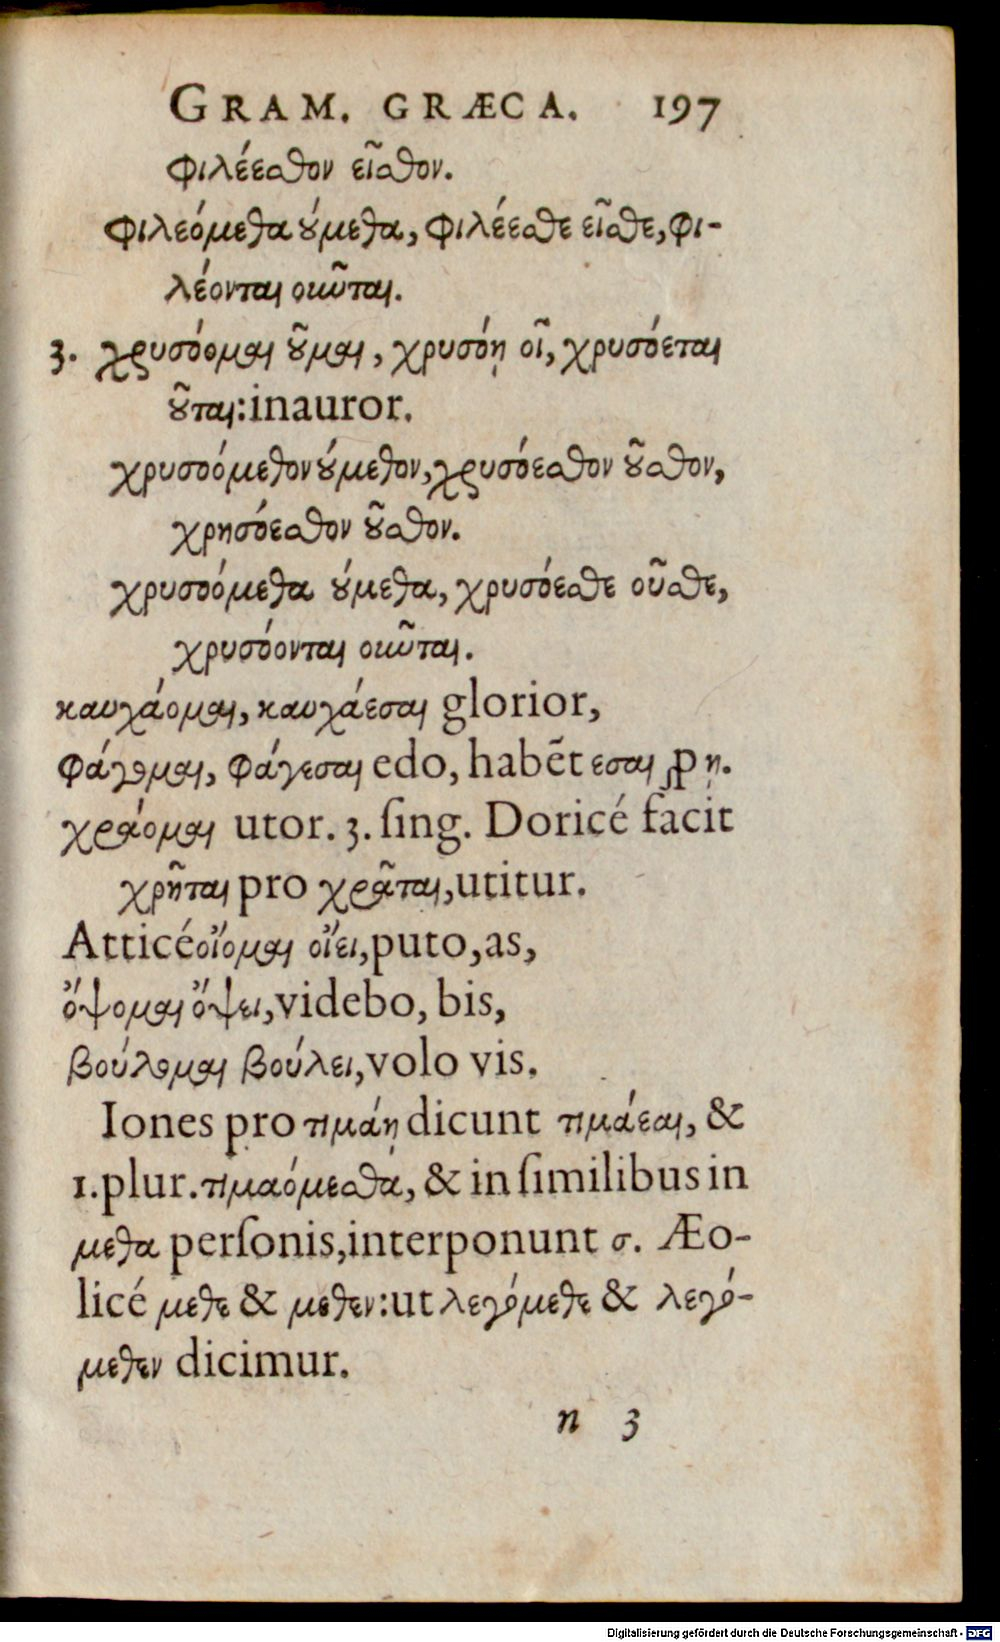 GRAM. GRÆCA. 197
φιλέεσθον εῖσθον.
φιλεόμεθα ούμεθα, φιλέεσθε εῖσθε, φι-
λέονται οιῶται.
3. χρυσόομαι οῦμαι, χρυσόῃ οῖ, χρυσόεται
οῦται: inauror.
χρυσοόμεθον ούμεθον, χρυσόεσθον οῦσθον,
χρησόεσθον οῦσθον.
χρυσοόμεθα ούμεθα, χρυσόεσθε οῦσθε,
χρυσόονται οιῶται.
καυχάομαι, καυχάεσαι glorior,
φάγομαι, φάγεσαι edo, habẽt εσαι ꝓ ῃ.
χράομαι utor. 3. ſing. Doricé facit
χρῆται pro χρᾶται, utitur.
Atticé οἴομαι οἴει, puto, as,
ὄψομαι ὄψει, videbo, bis,
βούλομαι βούλει, volo vis.
Iones pro τιμάῃ dicunt τιμάεαι, &
1. plur. τιμαόμεσθα, & in ſimilibus in
μεθα perſonis, interponunt σ. Æo-
licé μεθε & μεθεν: ut λεγόμεθε & λεγό-
μεθεν dicimur.
n 3
Digitalisierung gefördert durch die Deutsche Forschungsgemeinschaft - DFG